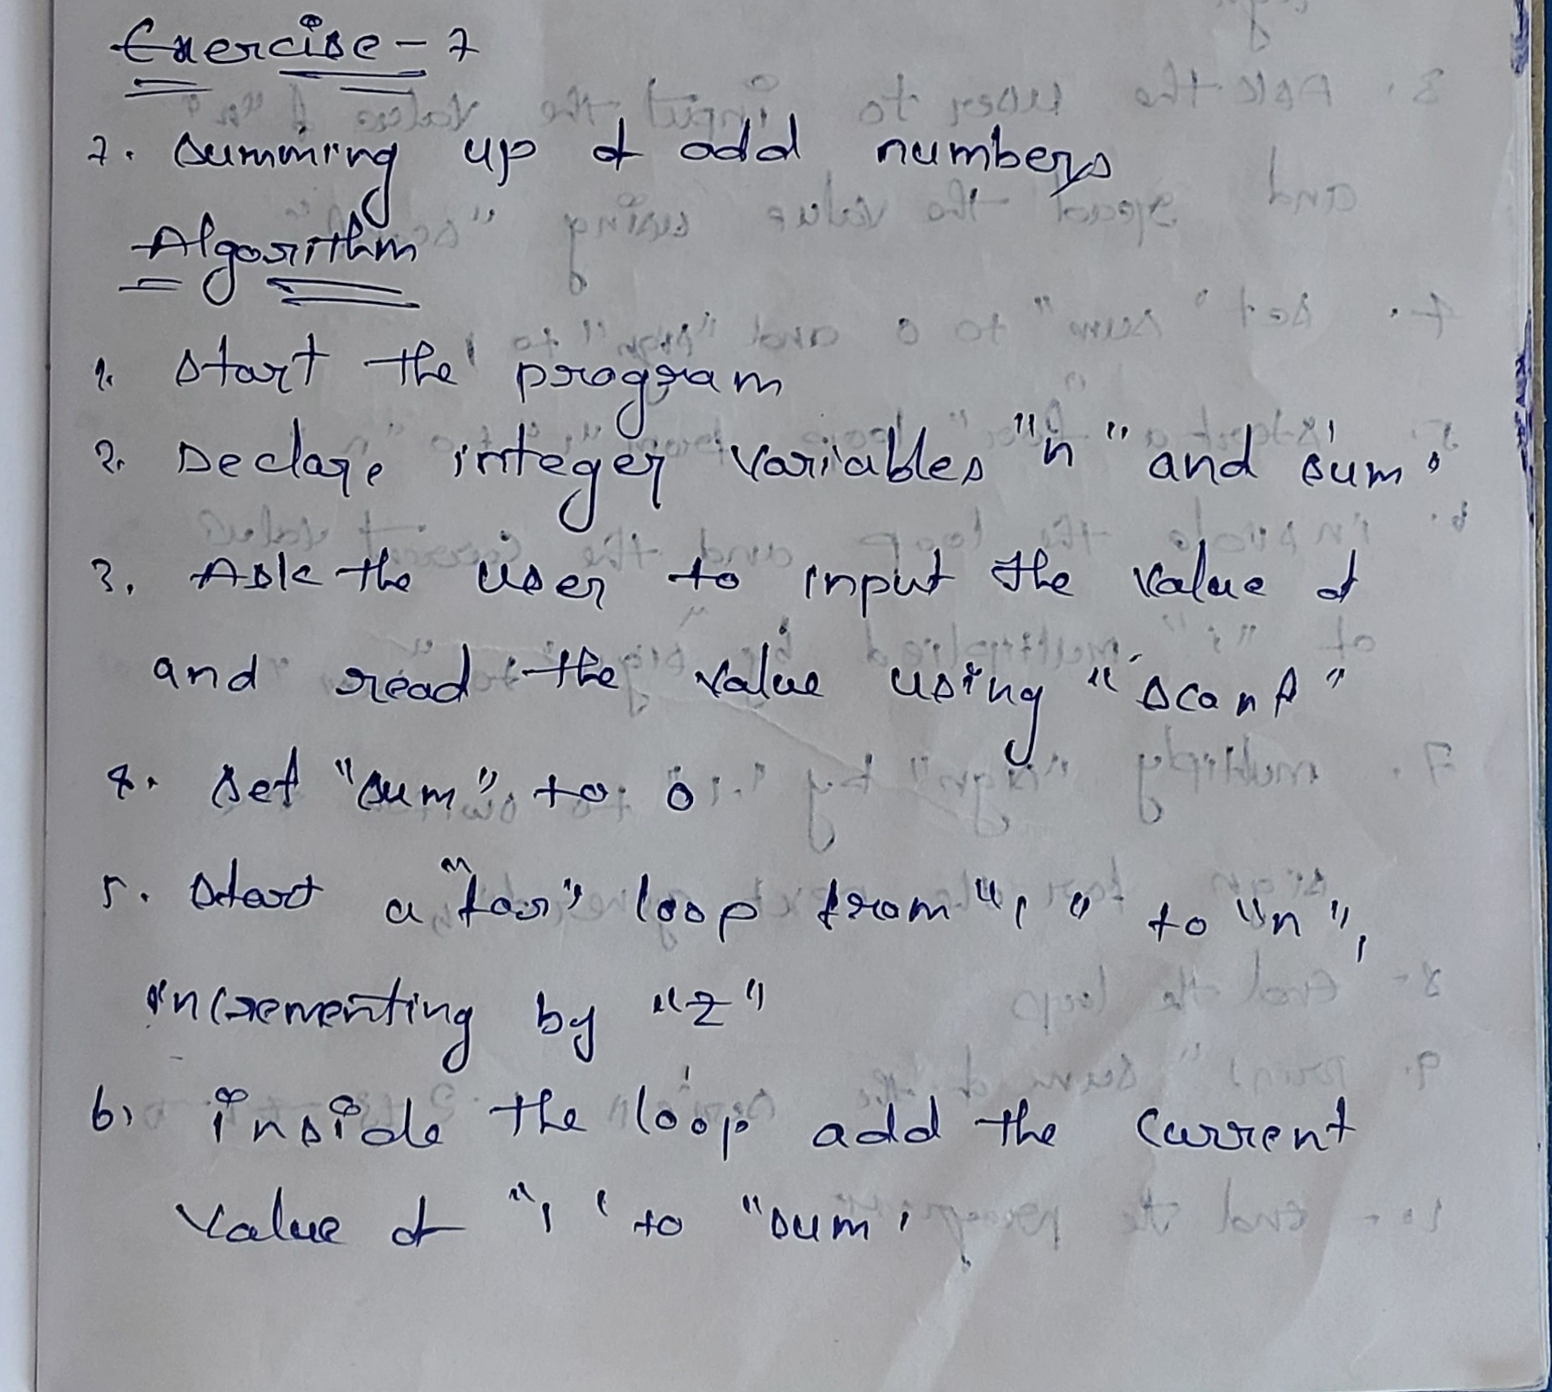 Exercise - 7
7. Summing up of odd numbers
Algorithm
1. Start the program
2. Declare integer variables "n" and sum.
3. Ask the user to input the value of
and read the value using "scanf"
4. Set "sum" to 0
5. Start a "for" loop from "1" to "n",
incrementing by "2"
6. inside the loop add the current
value of "i" to "sum"